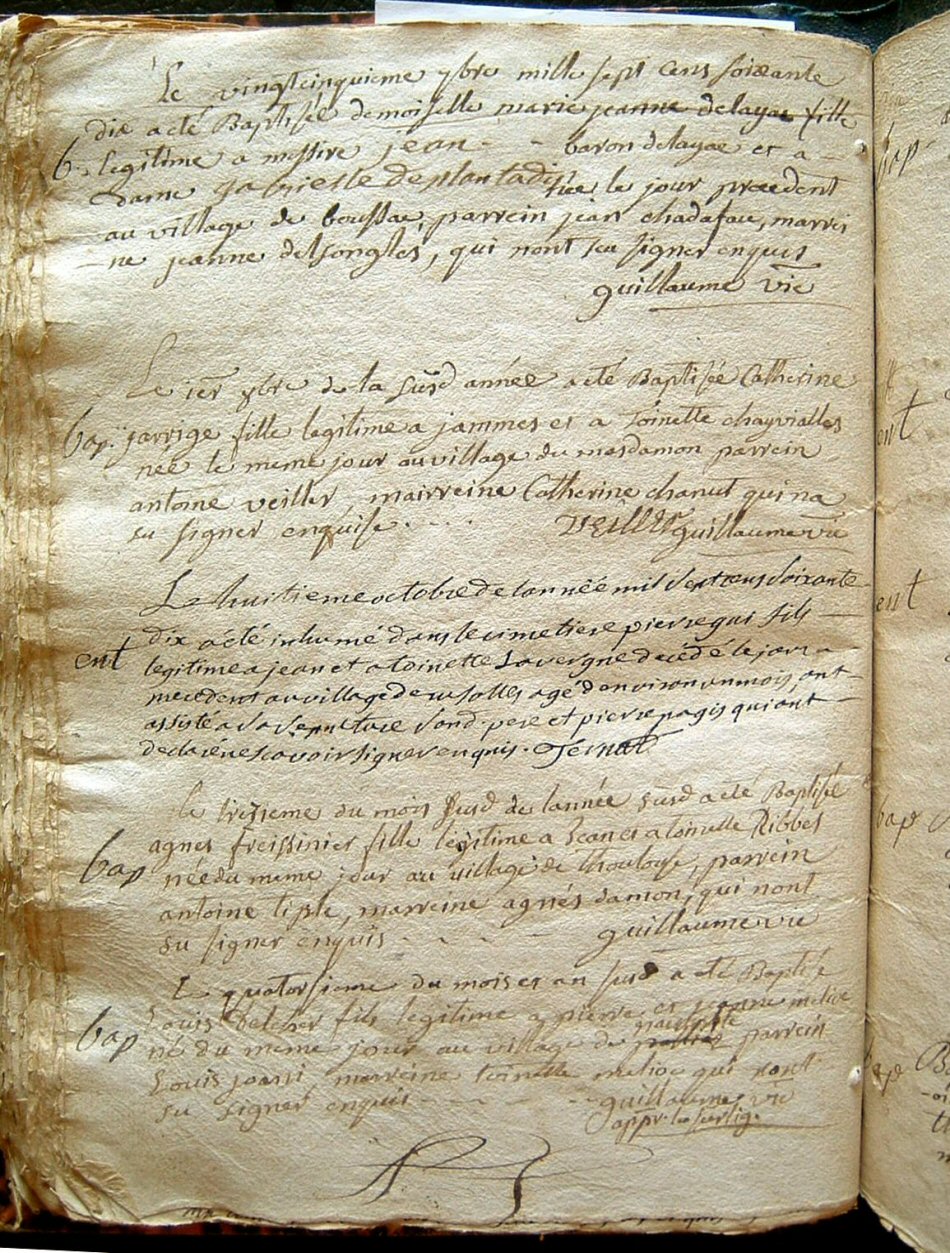 Le vingtcinquieme 7bre mille sept cens soixante
dix a eté Baptisée demoiselle marie jeanne delayac fille
b. legitime a messire jean - - baron delayac et a
Dame gabrielle deplantadis née le jour precedent
au village de boussac, parrein jean chadafau, marrei
-ne jeanne delsongles, qui n'ont su signer enquis
guillaume vic
Le 1er 8bre de la susd année a eté Baptisée Catherine
bap. jarrige fille legitime a jammes et a Toinette chayrialles
née le meme jour au village du masdamon parrein
antoine veiller mairreine Catherine chanut qui na
su signer enquise. . . . . veiller guillaume vic
Le huitieme octobre de lannëe mil sept cens soixante
dix a eté inhumé dans le cimetiere pierre gui fils
ent legitime a jean et a toinette Lavergne decedé le jour
precedent au village de agé denviron un mois, ont
assisté a sa sepulture sond. pere et pierre pagis qui ont
declaré ne scavoir signer enquis. Ternat
le treisieme du mois susd de lannée susd a eté Baptisée
agnes freissinier fille legitime a Jean et a toinette Ribbes
bap née du meme jour au village de thoulouse, parrein
antoine tiple, marreine agnés damon, qui nont
su signer enquis - - - - guillaume vic
Le quatorsieme du mois et an susd a eté Baptisé
Louis fils legitime a pierre et jeanne
bap né du meme jour au village de parrein
Louis joani, marreine toinette qui nont
su signer enquis - - - guillaume vic